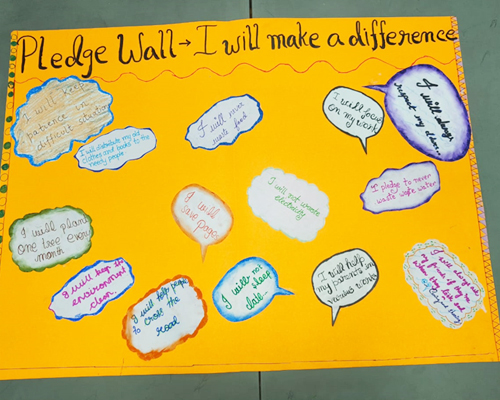 Pledge Wall → I will make a difference
I will keep
patience in
difficult situation
I will distribute my old
clothes and books to the
needy people
I will never
waste food
I will focus
on my work
I will always
respect my elders
I pledge to never
waste water
I will not waste
electricity
I will
save paper
I will plant
one tree every
month
I will keep the
environment
clean.
I will help people
to cross the
road
I will not
sleep
late.
I will help
my parents in
various work
I will always
my friends if they